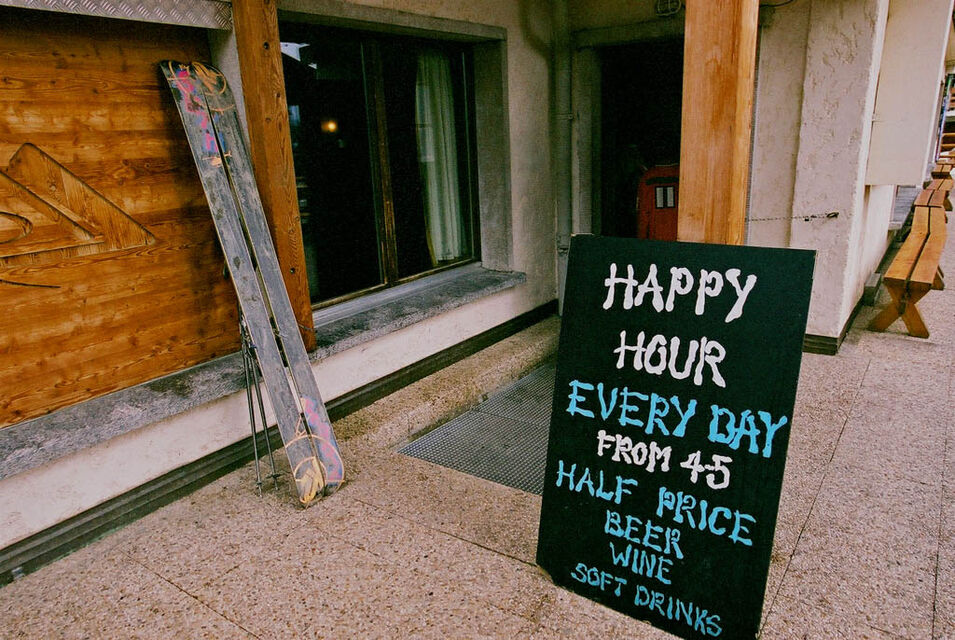 HAPPY
HOUR
EVERY DAY
FROM 4-5
HALF PRICE
BEER
WINE
SOFT DRINKS